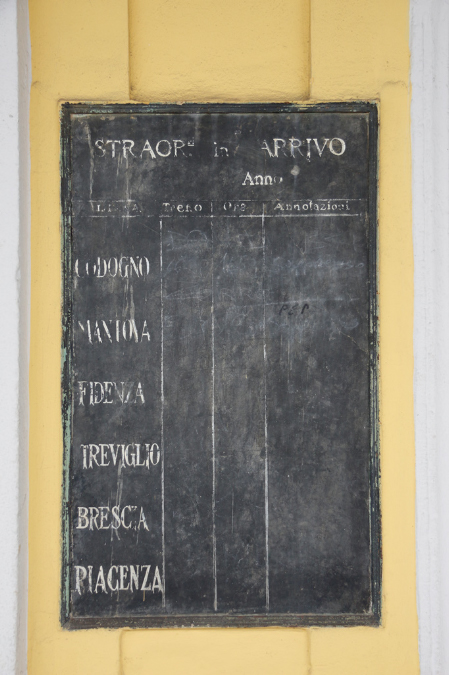 STRAORd in ARRIVO
Anno
LINEA Treno Ore Annotazioni
CODOGNO
MANTOVA
FIDENZA
TREVIGLIO
BRESCIA
PIACENZA